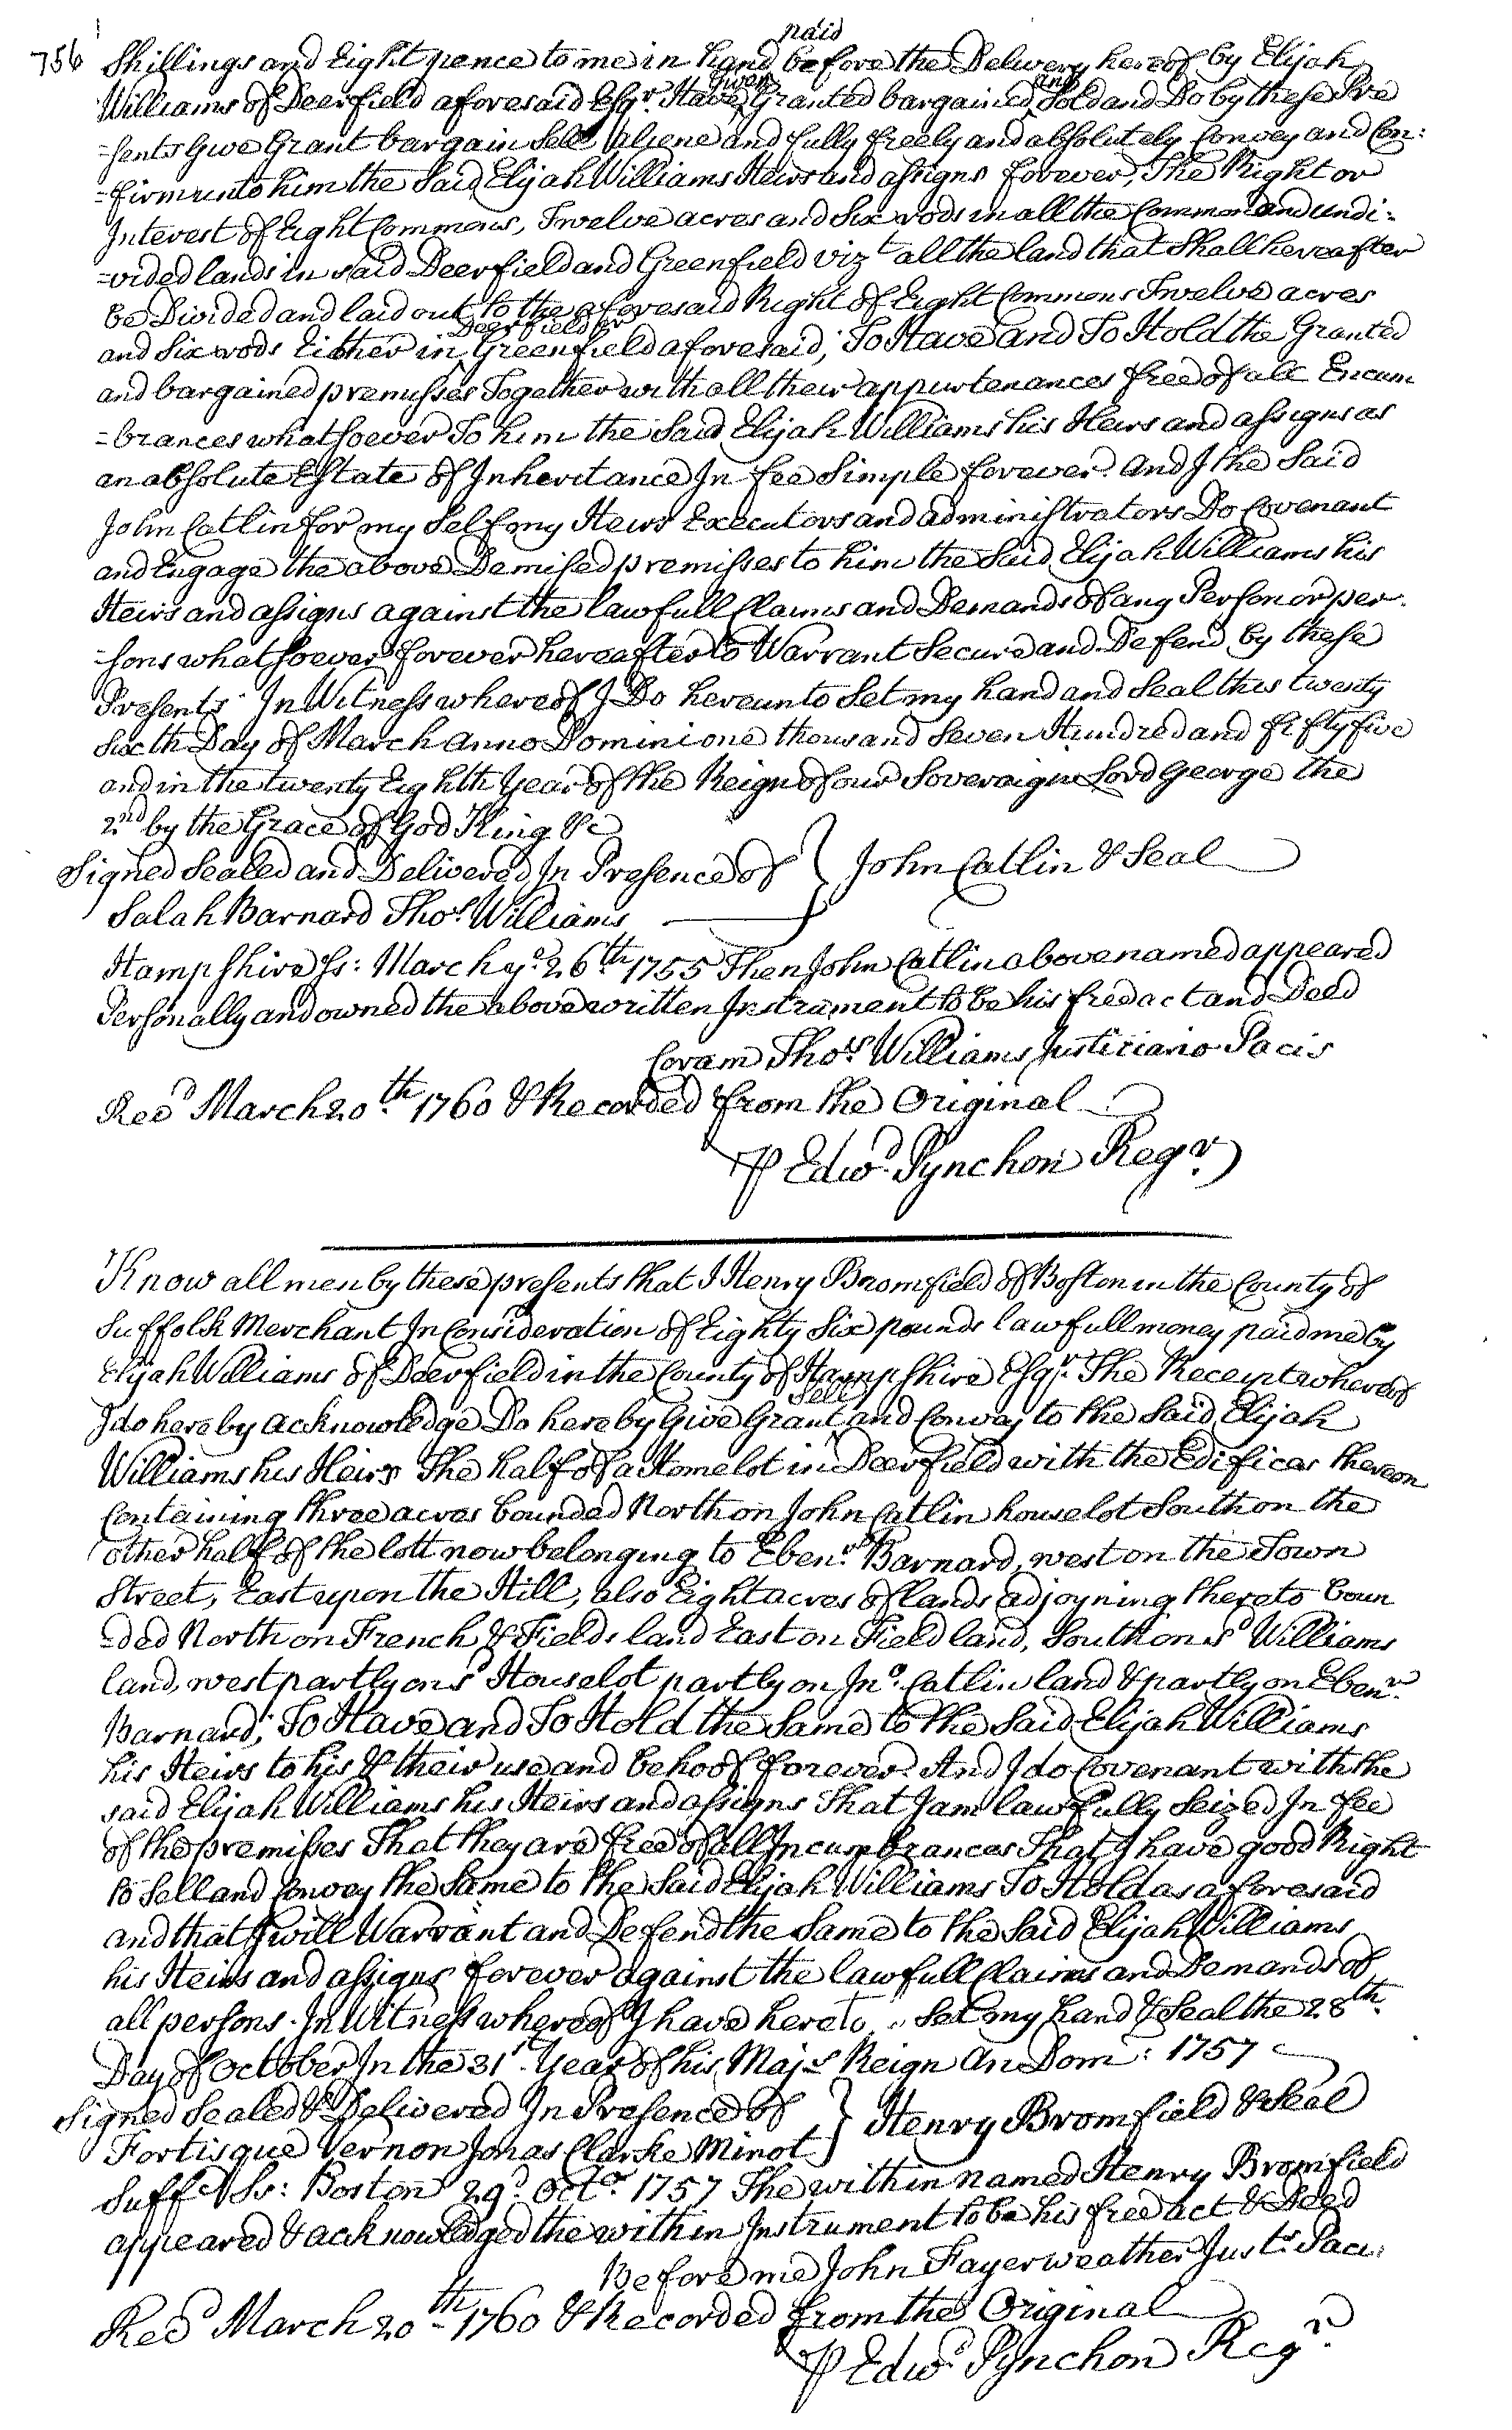 756
Shillings and Eight pence to me in hand paid before the Delivery hereof by Elijah
Williams of Deerfield aforesaid Esqr. Have Given Granted bargained and Sold and Do by these Pre
=sents Give Grant bargain Sell Aliene and fully freely and absolutely Convey and Con:
=firm unto him the Said Elijah Williams Heirs and assigns forever, The Right or
Interest of Eight Commons, Twelve acres and Six rods in all the Common and undi:
=vided lands in said Deerfield and Greenfield vizt all the land that Shall hereafter
be Divided and laid out to the aforesaid Right of Eight Commons Twelve acres
and Six rods Either in Deerfield or Greenfield aforesaid, To Have and To Hold the Granted
and bargained premisses Together with all their appurtenances free of all Encum
=brances whatsoever To him the Said Elijah Williams his Heirs and assigns as
an absolute Estate of Inheritance In fee Simple forever. and I the Said
John Catlin for my Self my Heirs Executors and administrators Do Covenant
and Engage the above Demised premisses to him the Said Elijah Williams his
Heirs and assigns against the lawfull Claims and Demands of any Person or per
=sons whatsoever forever hereafter to Warrant Secure and Defend by these
Presents. In Witness whereof I Do hereunto Set my hand and Seal this twenty
Sixth Day of March anno Domini one thousand Seven Hundred and fifty five
and in the twenty Eighth Year of the Reign of our Sovereign Lord George the
2nd by the Grace of God King &c
Signed Sealed and Delivered In Presence of } John Catlin & Seal
Salah Barnard Thos. Williams
Hampshire Ss: March ye. 26th. 1755 Then John Catlin above named appeared
Personally and owned the above written Instrument to be his free act and Deed
Coram Thos. Williams Justiciario Pacis
Recd March 20th. 1760 & Recorded from the Original
P Edwd. Pynchon Regr.
Know all men by these presents that I Henry Bromfield of Boston in the County of
Suffolk Merchant In Consideration of Eighty Six pounds lawfull money paid me by
Elijah Williams of Deerfield in the County of Hampshire Esqr. The Receipt whereof
I do hereby acknowledge Do hereby Give Grant Sell and Convey to the Said Elijah
Williams his Heirs The half of a Homelot in Deerfield with the Edifices thereon
Containing three acres bounded North on John Catlin houselot South on the
other half of the lott now belonging to Ebenr. Barnard, west on the Town
Street, East upon the Hill, also Eight acres of lands adjoyning thereto boun
=ded North on French & Fields land East on Field land, South on sd Williams
land, west partly on sd Houselot partly on Jno. Catlin land & partly on Ebenr.
Barnard; To Have and To Hold the Same to the Said Elijah Williams
his Heirs to his & their use and behoof forever. And I do Covenant with the
said Elijah Williams his Heirs and assigns That I am lawfully Seized In fee
of the premisses That they are free of all Incumbrances That I have good Right
to Sell and Convey the Same to the Said Elijah Williams To Hold as aforesaid
and that I will Warrant and Defend the Same to the Said Elijah Williams
his Heirs and assigns forever against the lawfull Claims and Demands of
all persons. In Witness whereof I have hereto Set my hand & Seal the 28th.
Day of October In the 31st. Year of his Majs Reign An Dom: 1757
Signed Sealed & Delivered In Presence of } Henry Bromfield & Seal
Fortisque Vernon Jonas Clarke Minot
Suff. Ss: Boston 29d. Octor. 1757 The within named Henry Bromfield
appeared & acknowledged the within Instrument to be his free act & Deed
Before me John Fayerweather Justs. Paci:
Recd March 20th. 1760 & Recorded from the Original
P Edwd. Pynchon Regr.